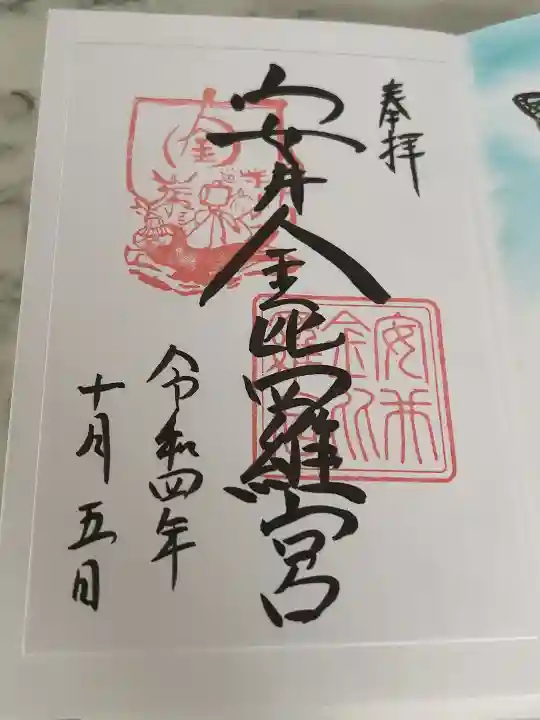 奉拝
安井金毘羅宮
令和四年
十月五日
金
安井
金刀比
羅宮